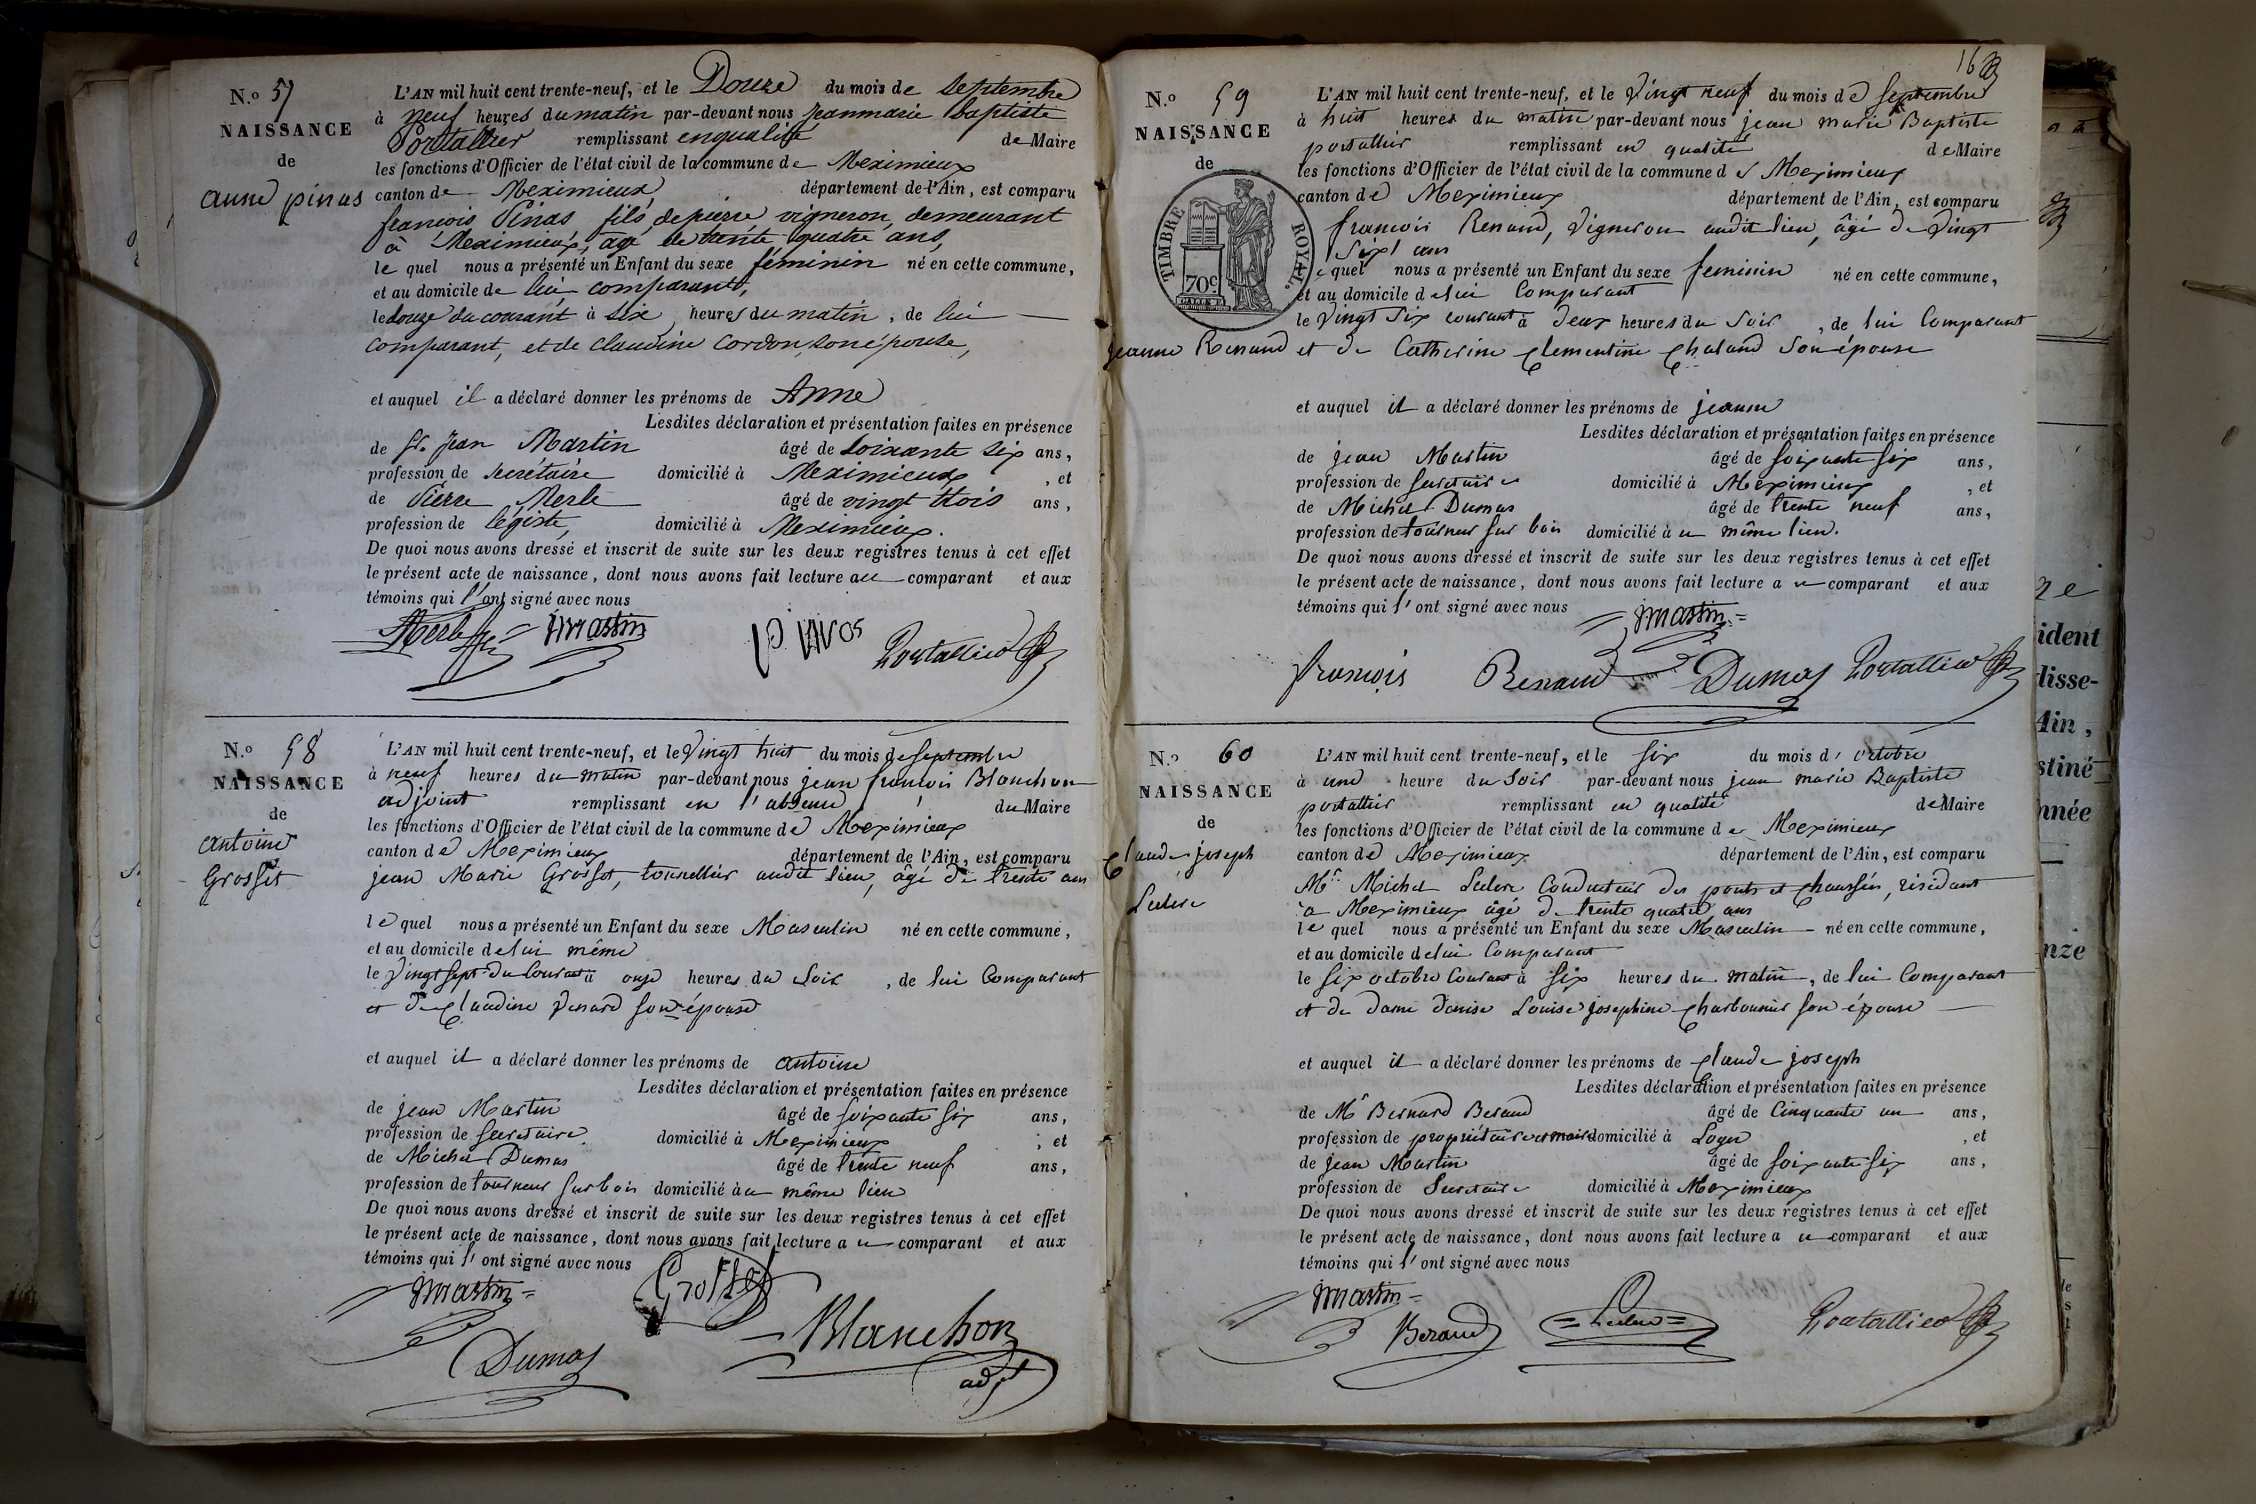 N.o 57
NAISSANCE
de
anne pinas
L'AN mil huit cent trente-neuf, et le Douze du mois de Septembre
à neuf heures du matin par-devant nous jeanmarie baptiste
Portallier remplissant en qualité de Maire
les fonctions d'Officier de l'état civil de la commune de Meximieux
canton de Meximieux département de l'Ain, est comparu
françois Pinas fils de pierre vigneron, demeurant
à Meximieux, âgé de trente quatre ans,
le quel nous a présenté un Enfant du sexe féminin né en cette commune,
et au domicile de lui comparant,
le douze du courant à six heures du matin, de lui
comparant, et de claudine Cordon, son épouse,
et auquel il a déclaré donner les prénoms de Anne
Lesdites déclaration et présentation faites en présence
de Sr. Jean Martin âgé de soixante six ans,
profession de secrétaire domicilié à Meximieux, et
de Pierre Merle âgé de vingt trois ans,
profession de légiste, domicilié à Meximieux.
De quoi nous avons dressé et inscrit de suite sur les deux registres tenus à cet effet
le présent acte de naissance, dont nous avons fait lecture au comparant et aux
témoins qui l'ont signé avec nous
Merle JMartin pinas Portallier
N.o 58
NAISSANCE
de
antoine
Grosset
L'AN mil huit cent trente-neuf, et le Vingt huit du mois de Septembre
à neuf heures du matin par-devant nous jean françois Blanchon
adjoint remplissant en l'absence du Maire
les fonctions d'Officier de l'état civil de la commune de Meximieux
canton de Meximieux département de l'Ain, est comparu
jean Marie Grosset, tonnellier audit lieu, âgé de trente ans
le quel nous a présenté un Enfant du sexe Masculin né en cette commune,
et au domicile de lui même
le Vingt sept du Courant à onze heures du Soir, de lui Comparant
et de Claudine Venard son épouse
et auquel il a déclaré donner les prénoms de antoine
Lesdites déclaration et présentation faites en présence
de jean Martin âgé de soixante six ans,
profession de secretaire domicilié à Meximieux, et
de Michel Dumas âgé de trente neuf ans,
profession de tourneur sur bois domicilié à u même lieu
De quoi nous avons dressé et inscrit de suite sur les deux registres tenus à cet effet
le présent acte de naissance, dont nous avons fait lecture a u comparant et aux
témoins qui l' ont signé avec nous
JMartin Grosset
Dumas Blanchon
adjt
16
N.o 59
NAISSANCE
de
TIMBRE ROYAL.
70c
jeanne Renaud
L'AN mil huit cent trente-neuf, et le Vingt neuf du mois de Septembre
à huit heures du matin par-devant nous jean marie Baptiste
portallier remplissant en qualité de Maire
les fonctions d'Officier de l'état civil de la commune de Meximieux
canton de Meximieux département de l'Ain, est comparu
françois Renaud, Vigneron audit lieu, âgé de Vingt
six ans
e quel nous a présenté un Enfant du sexe feminin né en cette commune,
et au domicile de lui Comparant
le Vingt six courant à deux heures du Soir, de lui Comparant
et de Catherine Clementine Chaland son épouse
et auquel il a déclaré donner les prénoms de jeanne
Lesdites déclaration et présentation faites en présence
de jean Martin âgé de soixante six ans,
profession de secretaire domicilié à Meximieux, et
de Michel Dumas âgé de trente neuf ans,
profession de tourneur sur bois domicilié à u même lieu.
De quoi nous avons dressé et inscrit de suite sur les deux registres tenus à cet effet
le présent acte de naissance, dont nous avons fait lecture a u comparant et aux
témoins qui l' ont signé avec nous
JMartin
françois Renaud Dumas Portallier
N.o 60
NAISSANCE
de
Claude joseph
Leclerc
L'AN mil huit cent trente-neuf, et le six du mois d' octobre
à une heure du Soir par-devant nous jean marie Baptiste
portallier remplissant en qualité de Maire
les fonctions d'Officier de l'état civil de la commune de Meximieux
canton de Meximieux département de l'Ain, est comparu
Mr Michel Leclerc Conducteur des ponts et chaussées, résidant
a Meximieux âgé de trente quatre ans
le quel nous a présenté un Enfant du sexe Masculin né en cette commune,
et au domicile de lui Comparant
le six octobre Courant à six heures du matin, de lui Comparant
et de dame denise Louise josephine Charbonnier son épouse
et auquel il a déclaré donner les prénoms de Claude joseph
Lesdites déclaration et présentation faites en présence
de Mr Bernard Beraud âgé de Cinquante un ans,
profession de propriétaire et maire domicilié à Loyes, et
de jean Martin âgé de soixante six ans,
profession de Secretaire domicilié à Meximieux
De quoi nous avons dressé et inscrit de suite sur les deux registres tenus à cet effet
le présent acte de naissance, dont nous avons fait lecture a u comparant et aux
témoins qui l' ont signé avec nous
JMartin Beraud Leclerc Portallier
ident
lisse-
Ain,
stiné
nnée
nze